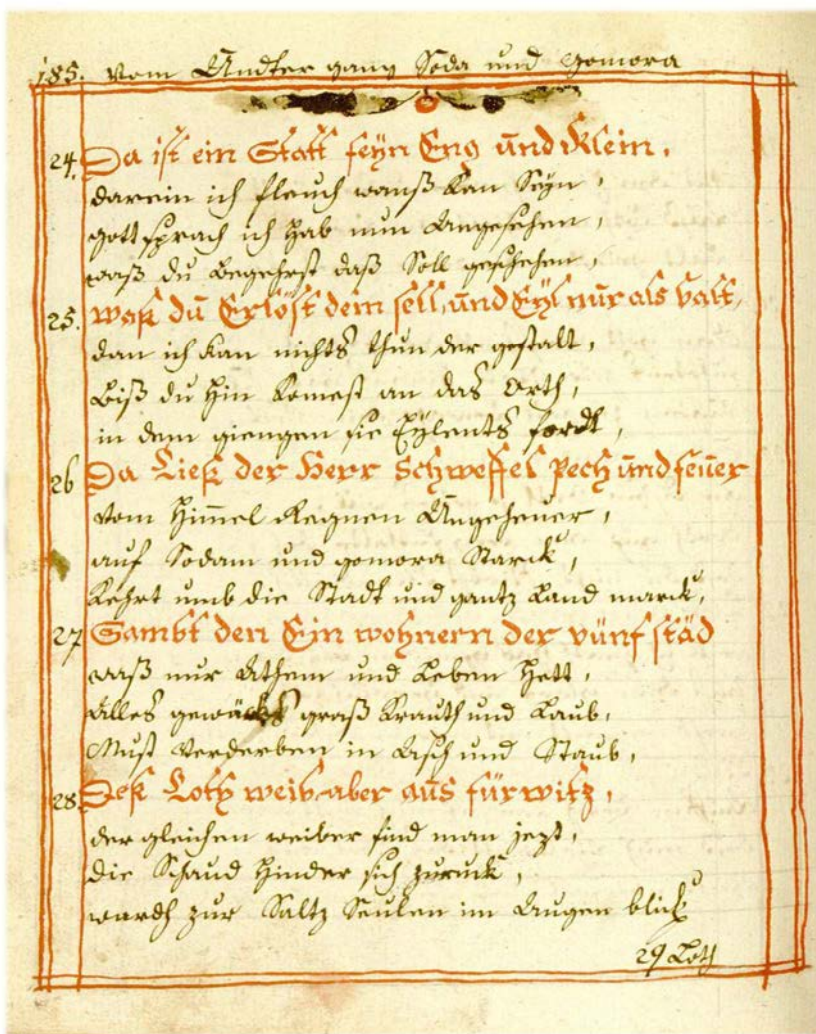 185. Vom Undter gang Soda und Gomora
24. Da ist ein Statt feyn Eng und Klein,
darein ich fleuch wanß kan Seyn,
gott sprach ich hab nun Angesehen,
waß du Begehrst daß Soll geschehen,
25. waß du Erlöst dein sell, und Eyl nur als balt,
dan ich kan nichts thun der gestalt,
Biß du hin komest an das Orth,
in dem giengen sie Eylents fordt,
26 Da Ließ der Herr Schweffel Pech und feuer
Vom Himel Regnen Ungeheuer,
auf Sodam und gomora Starck,
kehrt umb die Stadt und gantz Land marck,
27 Sambt den Ein wohnern der vünf städ
waß nur Athem und Leben hett,
Alles gewächs graß Krauth und Laub,
Must Verderben in Asch und Staub,
28. Deß Loth weib aber aus fürwitz,
der gleichen weiber find man jezt,
die Schaud hinder sich zuruck,
wardh zur Saltz Seulen im Augen blick
29 Loth